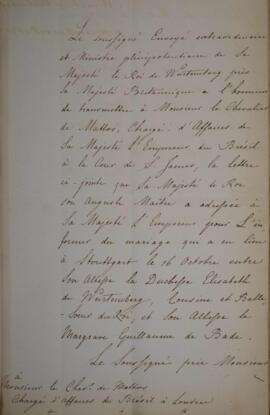 Le soussigné Envoyé extraordinaire
et Ministre plénipotentiaire de Sa
Majesté le Roi de Würtemberg près
Sa Majesté Britannique a l'honneur
de transmettre à Monsieur le Chevalier
de Mattos, Chargé d'Affaires de
Sa Majesté l'Empereur du Brésil
à la Cour de St James, la lettre
ci-jointe que Sa Majesté le Roi
son Auguste Maître a adressée à
Sa Majesté l'Empereur pour L'in
former du mariage qui a eu lieu
à Stouttgart le 16 Octobre entre
Son Altesse la Duchesse Elisabeth
de Würtemberg, Cousine et Belle
Soeur du Roi, et Son Altesse le
Margrave Guillaume de Bade.
Le Soussigné prie Monsieur
à
Monsieur le Chev. de Mattos
Chargé d'affaires du Brésil à Londres